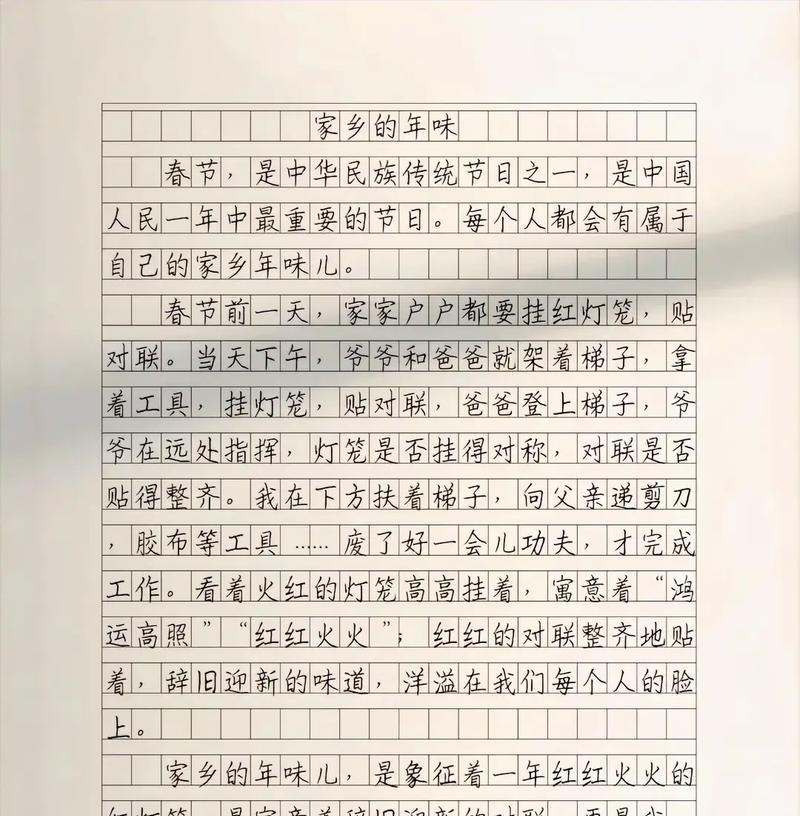 家乡的年味
春节，是中华民族传统节日之一，是中国
人民一年中最重要的节日。每个人都会有属于
自己的家乡年味儿。
春节前一天，家家户户都要挂红灯笼，贴
对联。当天下午，爷爷和爸爸就架着梯子，拿
着工具，挂灯笼，贴对联，爸爸登上梯子，爷
爷在远处指挥，灯笼是否挂得对称，对联是否
贴得整齐。我在下方扶着梯子，向父亲递剪刀
，胶布等工具……废了好一会儿功夫，才完成
工作。看着火红的灯笼高高挂着，寓意着“鸿
运高照”“红红火火”；红红的对联整齐地贴
着，辞旧迎新的味道，洋溢在我们每个人的脸
上。
家乡的年味儿，是象征着一年红红火火的
红灯笼，是寓意着辞旧迎新的对联，更是我